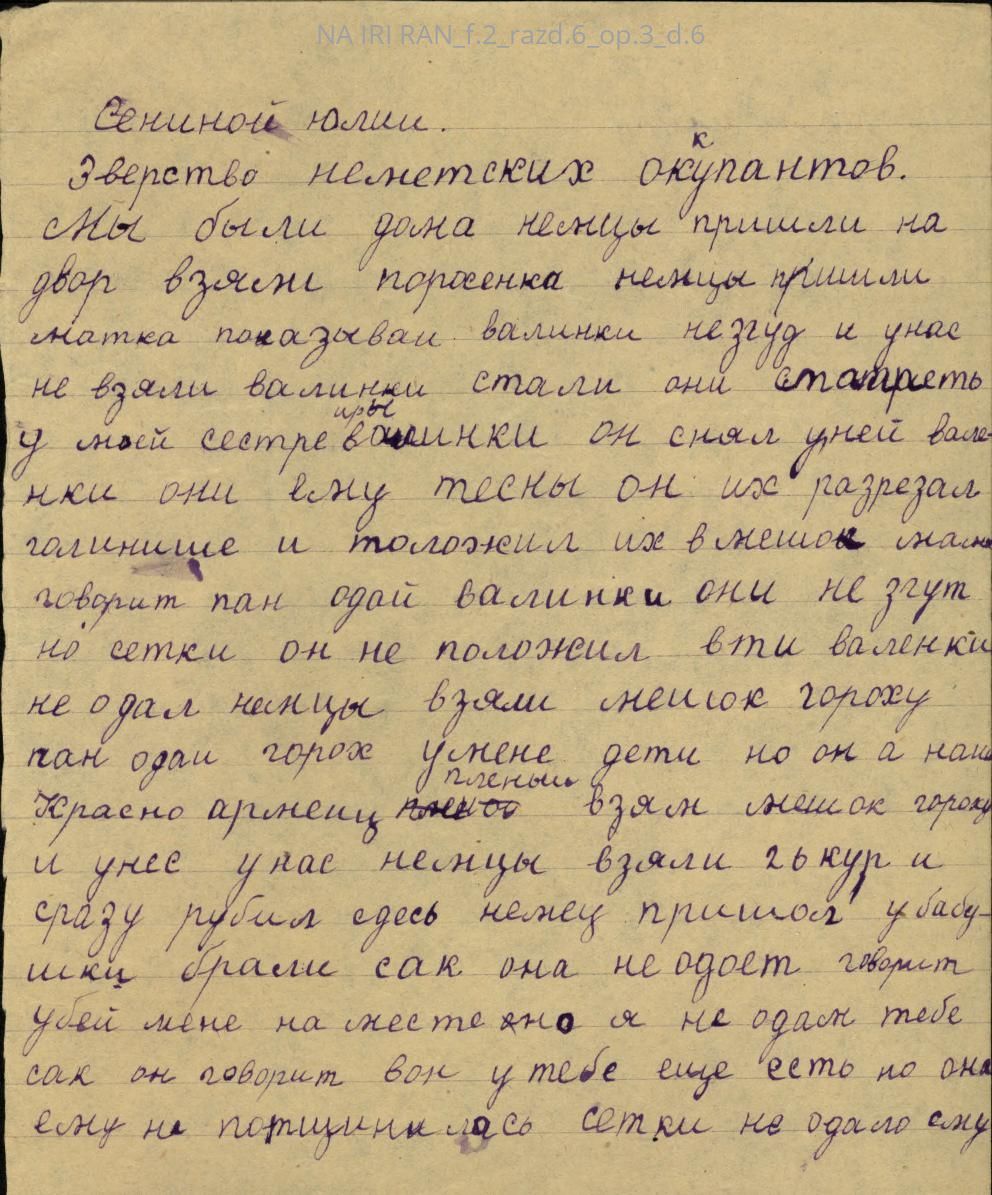 NA IRI RAN_f.2_razd.6_op.3_d.6
Сениной Юлии.
Зверство неметских оккупантов.
Мы были дома немцы пришли на
двор взяли поросенка немцы пришли
матка показываи валинки незгуд и унас
не взяли валинки стали они сматреть
у моей сестре иры валинки он снял уней вале-
нки они ему тесны он их разрезал
голинише и положил их в мешок мама
говорит пан одай валинки они не згут
но сетки он не положил вти валенки
не одал немцы взяли мешок гороху
пан одаи горох умене дети но он а наш
Красно армеиц пленыи взял мешок гороху
и унес унас немцы взяли 26 кур и
сразу рубил сдесь немец пришол убабу-
шки брали сак она не одоет говорит
убей мене на месте но я не одам тебе
сак он говорит вон у тебе еще есть но она
ему не потщинилась сетки не одало ему